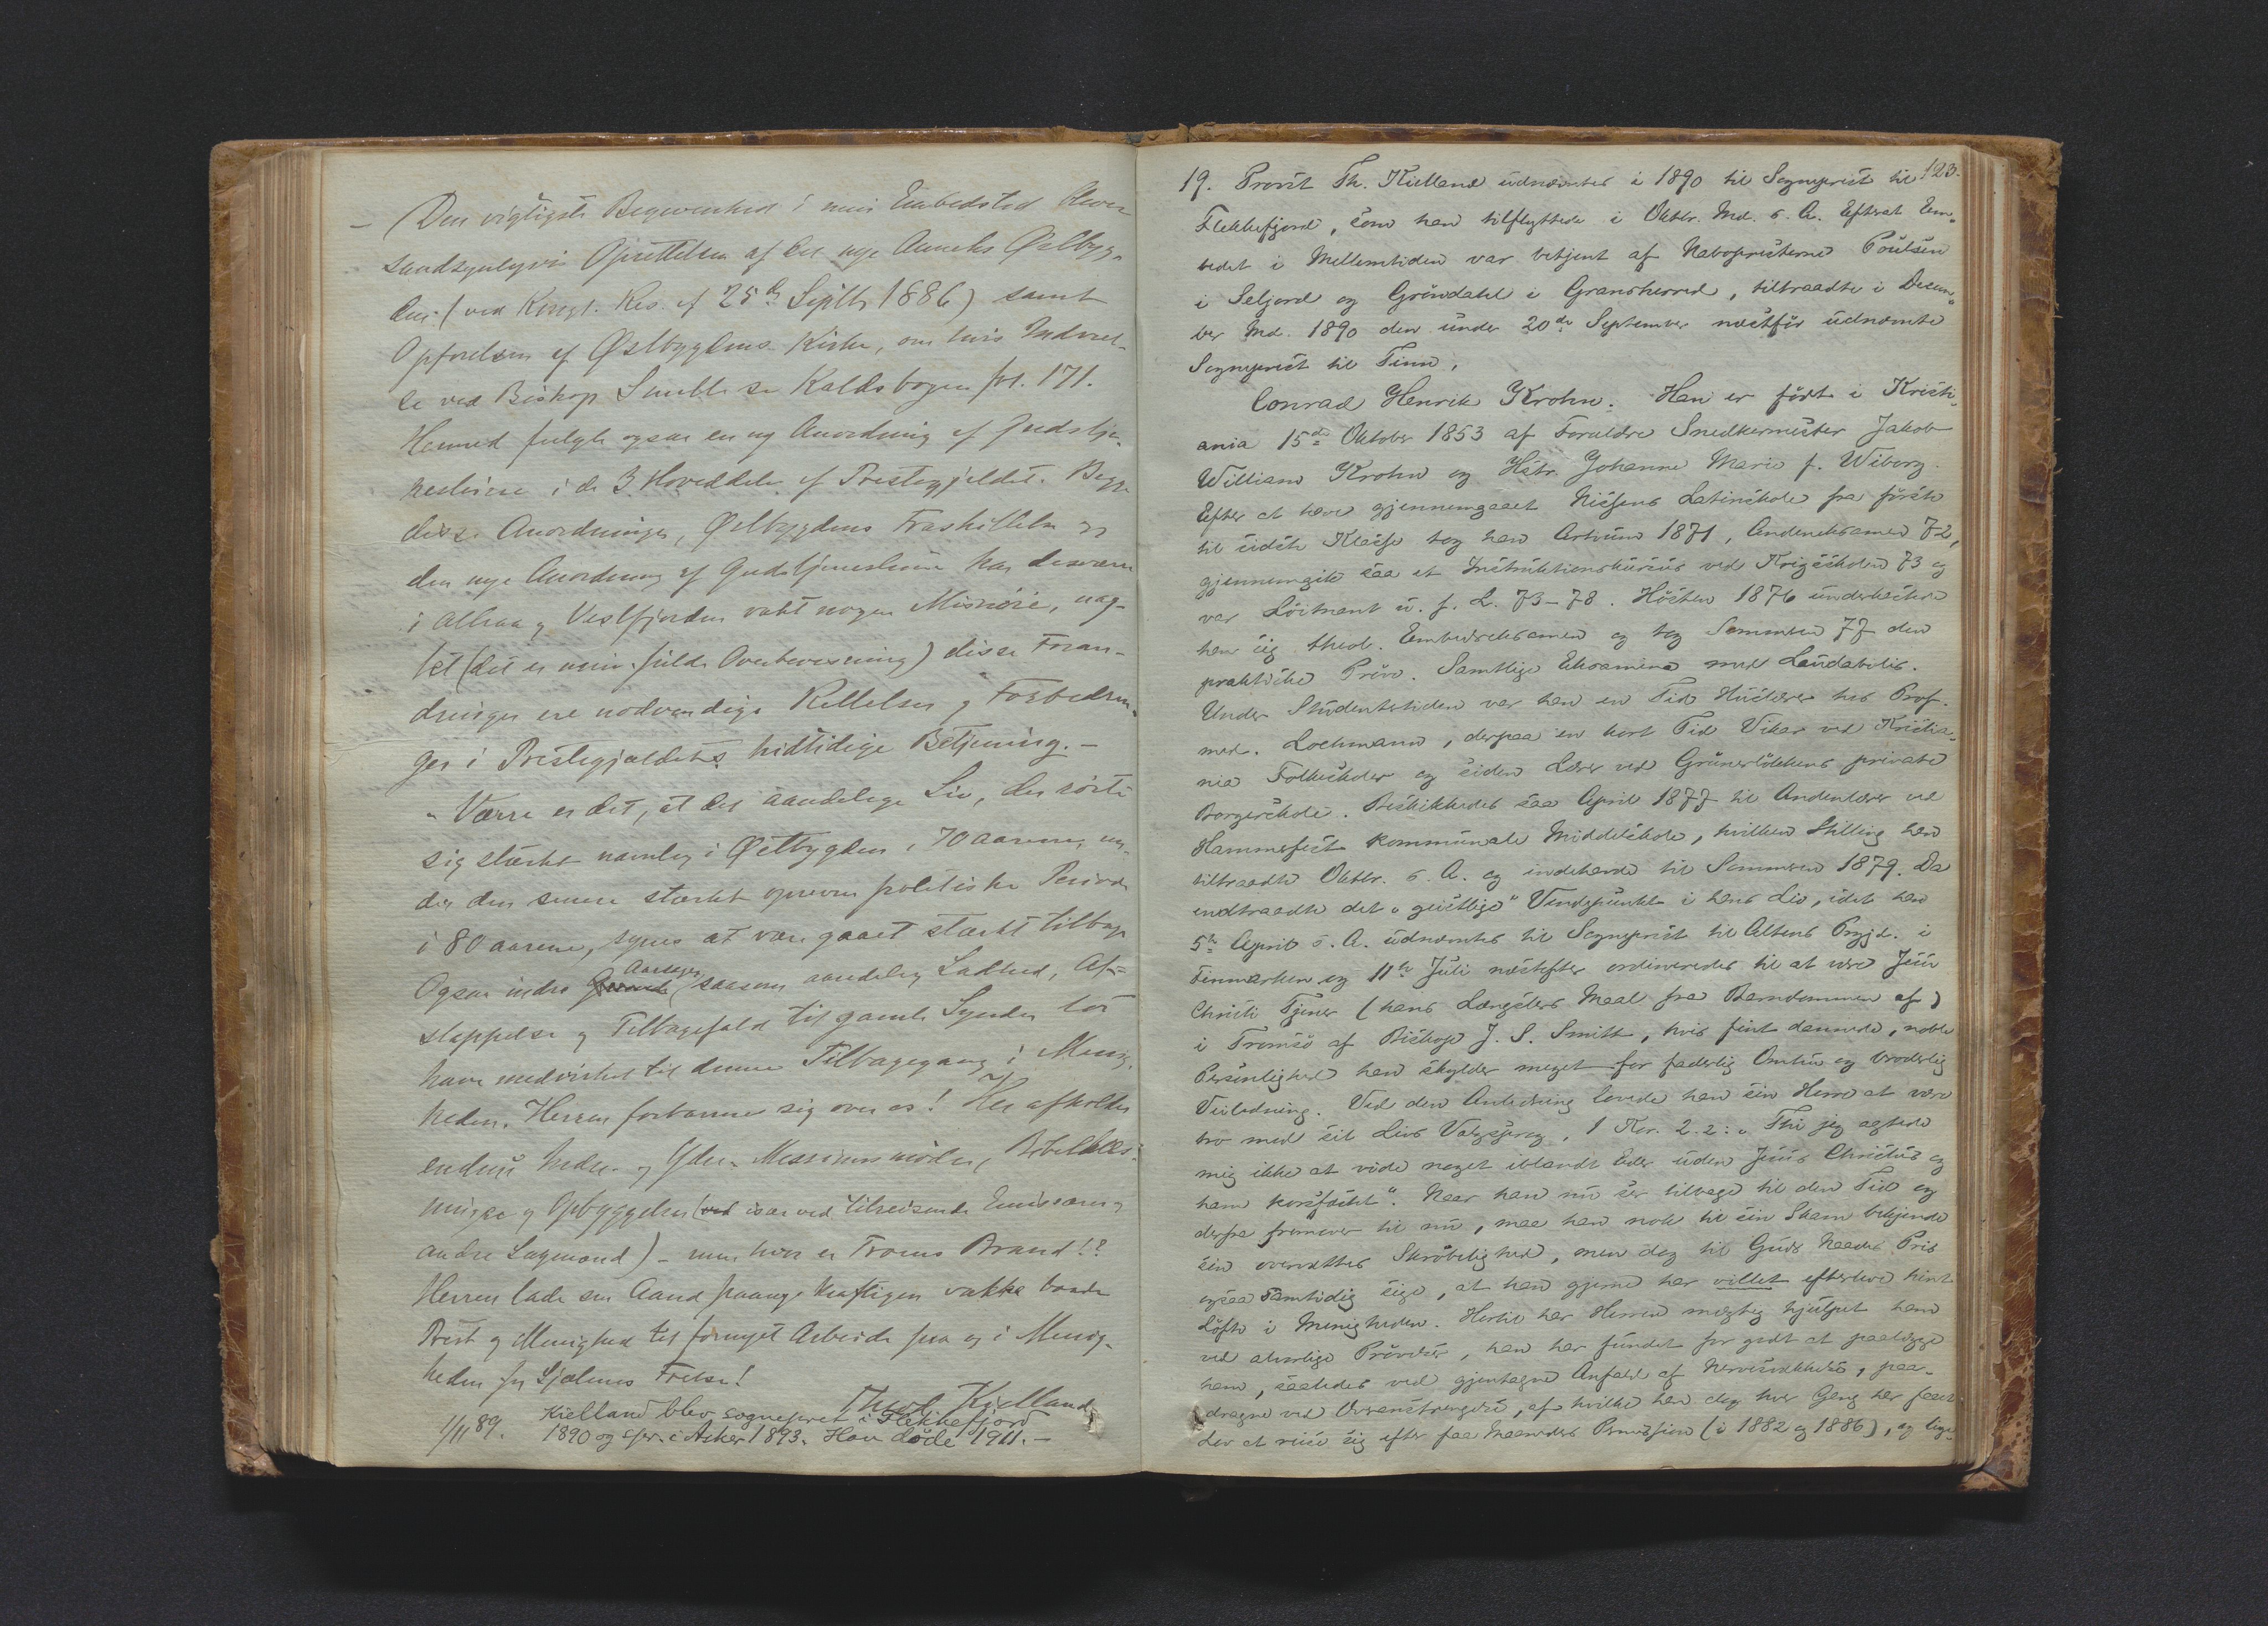 – Den vigtigste Begivenhed i min Embedstid bliver
sandsynligvis Oprettelsen af det nye Anneks Østbyg-
den (ved Kongl. Res. af 25de Septbr 1886) samt
Opførelsen af Østbygdens Kirke, om hvis Indviel-
se ved Biskop Smitt se Kaldsbogen fol. 171.
Hermed fulgte ogsaa en ny Anordning af Gudstje-
nesterne i de 3 Hoveddele af Prestegjeldet. Begge
disse Anordninger, Østbygdens Fraskillelse og
den nye Anordning af Gudstjenesterne har desværre
i Atraa og Vestfjorden vakt nogen Misnøie, uag-
tet (det er min fulde Overbevisning) disse Foran-
dringer ere nødvendige Rettelser og Forbedrin-
ger i Prestegjældets hidtidige Betjening. –
Værre er det, at det aandelige Liv, der rørte
sig stærkt navnlig i Østbygden i 70 aarene, un-
der den senere stærkt oprevne politiske Periode
i 80 aarene, synes at være gaaet stærkt tilbage
Ogsaa indre Aarsager, saasom aandelig Ladhed, Af-
slappelse og Tilbagefald til gamle Synder tør
have medvirket til denne Tilbagegang i Menig-
heden. Herren forbarme sig over os! Her afholdes
endnu Indre- og Ydre- Missionsmøder, Bibellæs-
ninger og Opbyggelser (ved især ved tilreisende Emissærer og
andre Lægmænd) – men hvor er Troens Brand!?
Herren lade sin Aand paany kraftigen vække baade
Prest og Menighed til fornyet Arbeide paa og i Menig-
heden for Sjælenes Frelse!
Thvol. Kielland
1/11 89. Kielland blev sogneprest i Flekkefjord
1890 og spr. i Asker 1893. Han døde 1911. –
123.
19. Provst Th. Kielland udnævntes i 1890 til Sogneprest til
Flekkefjord, som han tilflyttede i Oktbr. Md. s. A. Efterat Em-
bedet i Mellemtiden var betjent af Nabopresterne Poulsen
i Seljord og Gröndahl i Gransherred, tiltraadte i Decem-
ber Md. 1890 den under 20de September næstfør udnævnte
Sogneprest til Tinn,
Conrad Henrik Krohn. Han er født i Kristi-
ania 15de Oktober 1853 af Forældre Snedkermester Jakob
William Krohn og Hstr. Johanne Marie f. Wiborg.
Efter at have gjennemgaaet Nissens Latinskole fra første
til sidste Klasse tog han Artium 1871, Andeneksamen 72,
gjennemgik saa et Instruktionskursus ved Krigsskolen 73 og
var Löitnant u. f. L. 73–78. Høsten 1876 underkastede
han sig theol. Embedseksamen og tog Sommeren 77 den
praktiske Prøve. Samtlige Eksamina med Laudabilis.
Under Studentertiden var han en Tid Huslærer hos Prof.
med. Lochmann, derpaa en kort Tid Vikar ved Kristia-
nia Folkeskoler og siden Lærer ved Grünerløkkens private
Borgerskole. Beskikkedes saa April 1877 til Andenlærer ved
Hammerfest kommunale Middelskole, hvilken Stilling han
tiltraadte Oktbr. s. A. og indehavde til Sommeren 1879. Da
indtraadte det „geistlige" Vendepunkt i hans Liv, idet han
5te April s. A. udnævntes til Sogneprest til Altens Prgjd. i
Finmarken og 11te Juli næstefter ordineredes til at være Jesu
Christi Tjener (hans Længslers Maal fra Barndommen af)
i Tromsö af Biskop J. S. Smitt, hvis fint dannede, noble
Personlighed han skylder meget for faderlig Omhu og broderlig
Veiledning. Ved den Anledning lovede han sin Herre at være
tro mod sit Livs Valgsprog, 1 Kor. 2.2: „Thi jeg agtede
mig ikke at vide noget iblandt Eder uden Jesus Christus og
ham korsfæstet". Naar han nu ser tilbage til den Tid og
derfra fremover til nu, maa han nok til sin Skam bekjende
sin overvættes Skrøbelighed, men dog til Guds Naades Pris
ogsaa samtidig sige, at han gjerne har villet efterleve hint
Løfte i Menigheden. Hertil har Herren mægtig hjulpet ham
ved alvorlige Prøvelser, han har fundet for godt at paalægge
ham, saaledes ved gjentagne Anfald af Nervesvækkelse, paa-
dragne ved Overanstrengelse, af hvilke han dog hver Gang har faaet
Lov at reise sig efter faa Maaneders Permission (i 1882 og 1886), og lige-